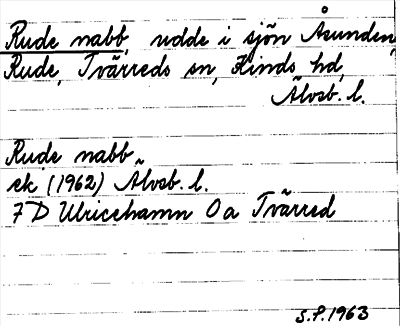 Rude nabb, udde i sjön Åsunden,
Rude, Tvärreds sn, Kinds hd,
Älvsb. l.
Rude nabb
ek (1962) Älvsb. l.
7 D Ulricehamn 0a Tvärred
S.P. 1963